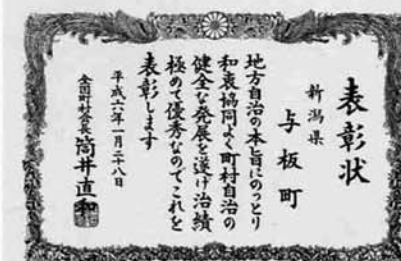 表彰状
新潟県
与板町
地方自治の本旨にのっとり
和衷協同よく町村自治の
健全な発展を遂げ治績
極めて優秀なのでこれを
表彰します
平成六年一月二十八日
全国町村会長 筒井直和